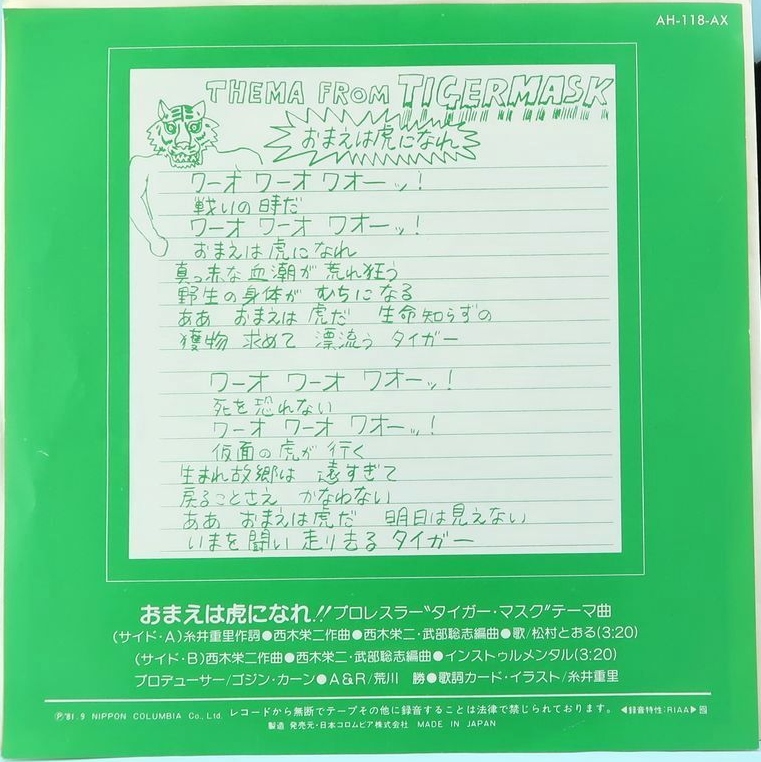 AH-118-AX
THEMA FROM TIGERMASK
おまえは虎になれ
ワーオ ワーオ ワオーッ!
戦いの時だ
ワーオ ワーオ ワオーッ!
おまえは虎になれ
真っ赤な血潮が 荒れ狂う
野生の身体が むちになる
ああ おまえは 虎だ 生命知らずの
獲物 求めて 漂流う タイガー
ワーオ ワーオ ワオーッ!
死を恐れない
ワーオ ワーオ ワオーッ!
仮面の虎が 行く
生まれ故郷は 遠すぎて
戻ることさえ かなわない
ああ おまえは虎だ 明日は見えない
いまを闘い 走り去る タイガー
おまえは虎になれ!! プロレスラー“タイガー・マスク”テーマ曲
(サイド・A)糸井重里作詞●西木栄二作曲●西木栄二・武部聡志編曲●歌/松村とおる(3:20)
(サイド・B)西木栄二作曲●西木栄二・武部聡志編曲●インストゥルメンタル(3:20)
プロデューサー/ゴジン・カーン●A&R/荒川 勝●歌詞カード・イラスト/糸井重里
Ⓟ'81.9 NIPPON COLUMBIA Co., Ltd. レコードから無断でテープその他に録音することは法律で禁じられております。 ◀録音特性:RIAA▶
製造 発売元・日本コロムビア株式会社 MADE IN JAPAN